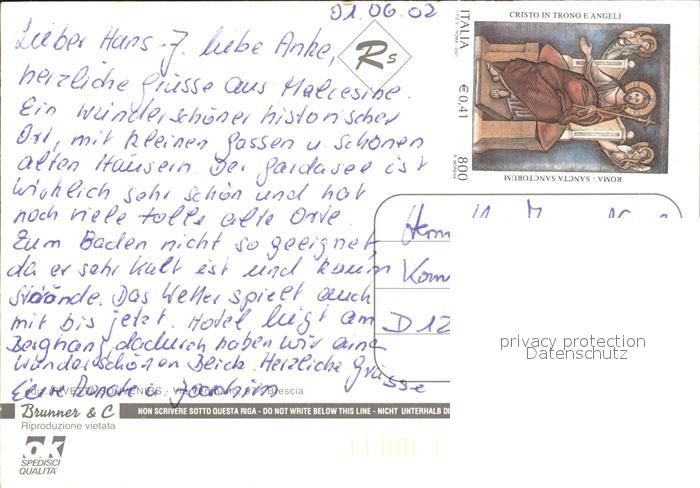 01.06.02
Lieber Hans-J. liebe Anke,
herzliche Grüsse aus Malcesine.
Ein wunderschöner historischer
Ort, mit kleinen Gassen u. schönen
alten Häusern. Der Gardasee ist
wirklich sehr schön und hat
noch viele tolle alte Orte.
Zum Baden nicht so geeignet,
da er sehr kalt ist und kaum
Strände. Das Wetter spielt auch
mit bis jetzt. Hotel liegt am
Berghang, dadurch haben wir einen
wunderschönen Blick. Herzliche Grüsse
Eure & Joachim
Rs
CRISTO IN TRONO E ANGELI
ITALIA
€ 0,41
800
ROMA - SANCTA SANCTORUM
D 12
privacy protection
Datenschutz
SOUVENIRS - Brescia
Brunner & C
NON SCRIVERE SOTTO QUESTA RIGA - DO NOT WRITE BELOW THIS LINE - NICHT UNTERHALB DI
Riproduzione vietata
ok
SPEDISCI
QUALITA'